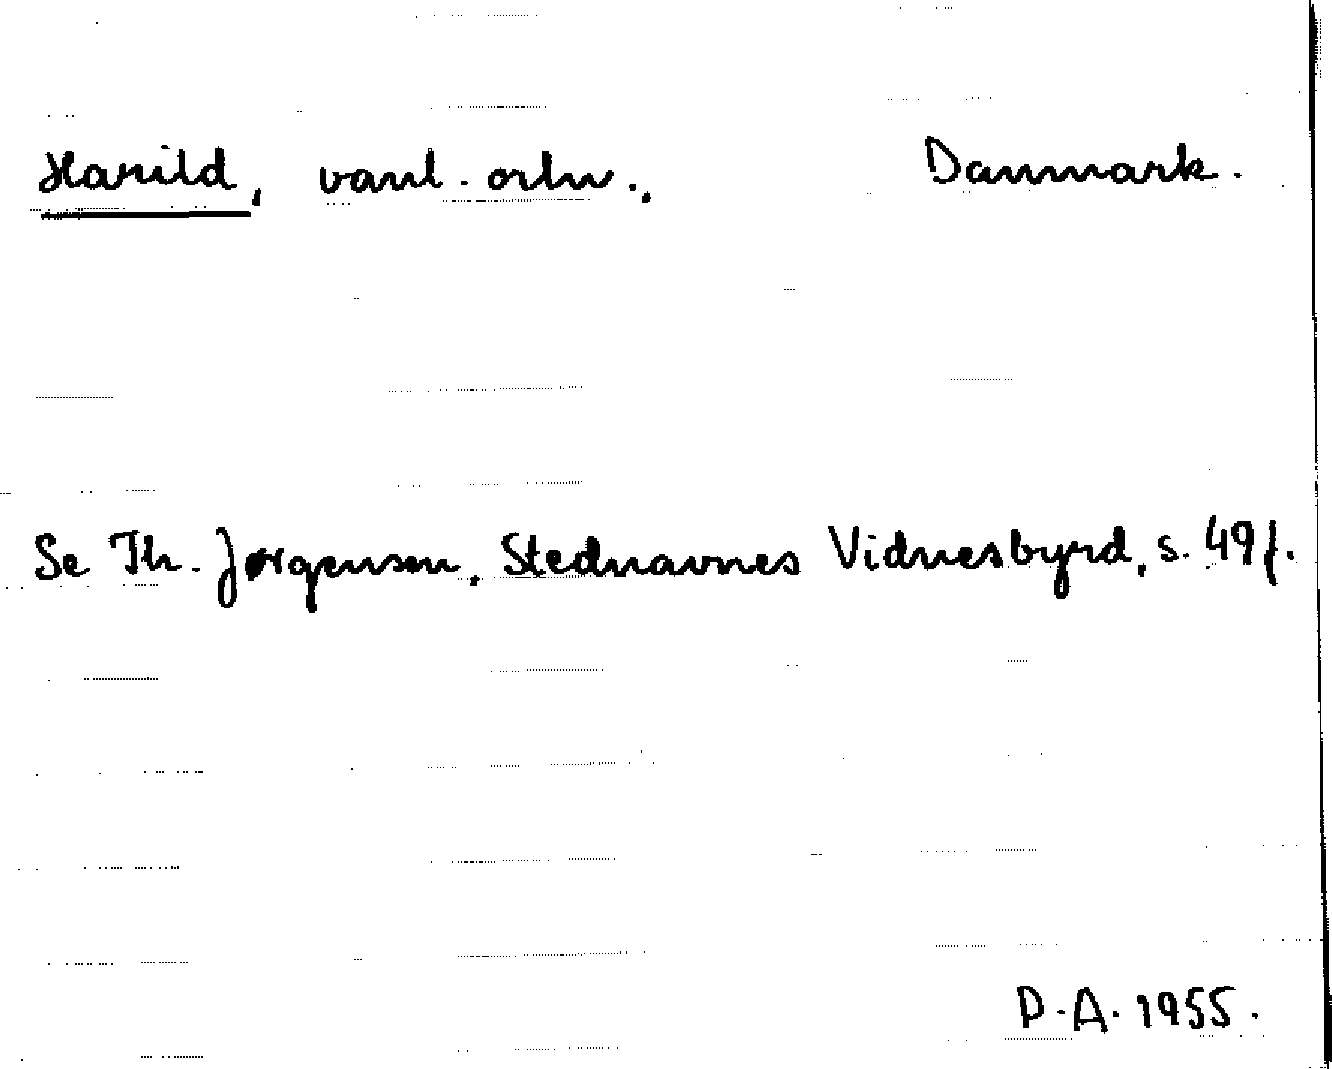 Harild, vanl. ortn., Danmark.
Se Th. Jørgensen, Stednavnes Vidnesbyrd, s. 49f.
D.A. 1955.